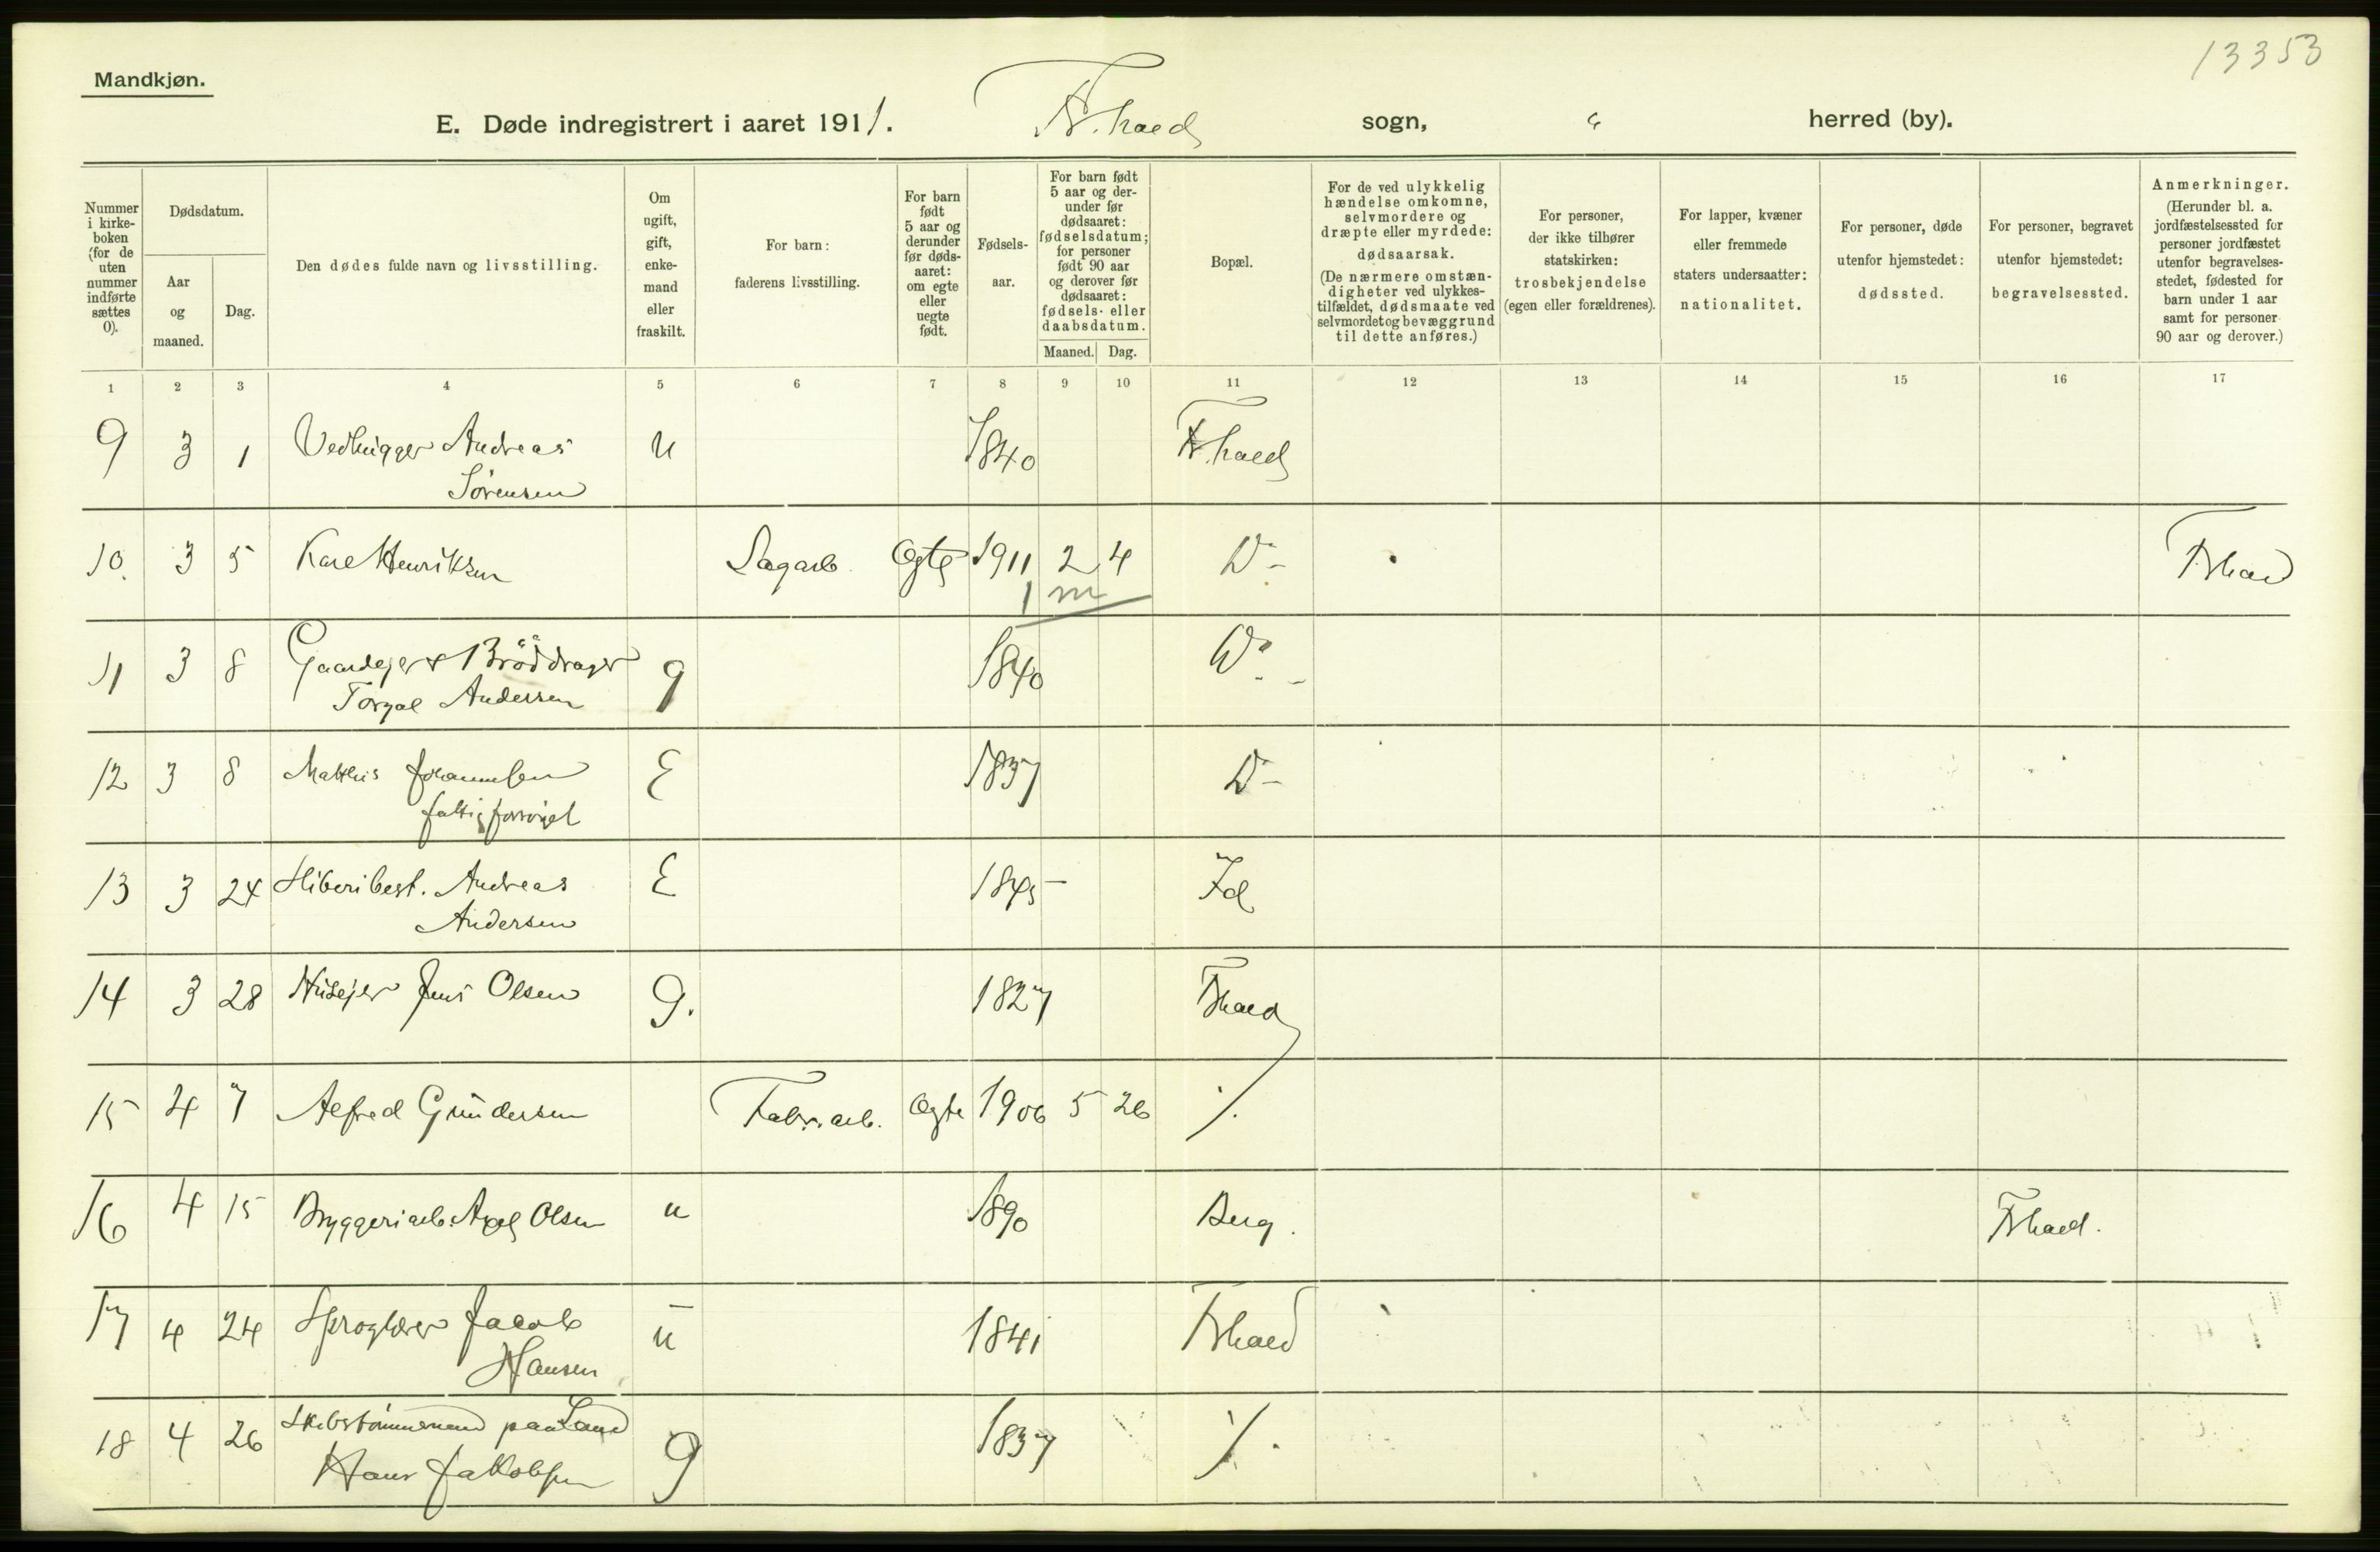 13353
Mandkjøn.
E. Døde indregistrert i aaret 1911. Fr.hald sogn, " herred (by).
Nummer i kirkeboken (for de uten nummer indførte sættes 0).
Dødsdatum.
Aar og maaned.
Dag.
Den dødes fulde navn og livsstilling.
Om ugift, gift, enkemand eller fraskilt.
For barn: faderens livsstilling.
For barn født 5 aar og derunder før dødsaaret: om egte eller uegte født.
Fødselsaar.
For barn født 5 aar og derunder før dødsaaret: fødselsdatum; for personer født 90 aar og derover før dødsaaret: fødsels- eller daabsdatum.
Maaned. Dag.
Bopæl.
For de ved ulykkelig hændelse omkomne, selvmordere og dræpte eller myrdede: dødsaarsak. (De nærmere omstændigheter ved ulykkestilfældet, dødsmaate ved selvmordet og bevæggrund til dette anføres.)
For personer, der ikke tilhører statskirken: trosbekjendelse (egen eller forældrenes).
For lapper, kvæner eller fremmede staters undersaatter: nationalitet.
For personer, døde utenfor hjemstedet: dødssted.
For personer, begravet utenfor hjemstedet: begravelsessted.
Anmerkninger. (Herunder bl. a. jordfæstelsessted for personer jordfæstet utenfor begravelsesstedet, fødested for barn under 1 aar samt for personer 90 aar og derover.)
1 2 3 4 5 6 7 8 9 10 11 12 13 14 15 16 17
9 3 1 Vedhugger Andreas u 1840 Fr.hald
Sørensen
10. 3 5 Karl Henriksen Sagarb. Egte 1911 2 4 Do Fr.hald
1 m
11 3 8 Gaardejer & Brøddrager g 1840 Do
Andersen
12 3 8 Mathis Johannesen E 1837 Do
fattigforsørget
13 3 24 Andreas E 1845 Id
Andersen
14 3 28 Husejer Jens Olsen g. 1827 Fr.hald
15 4 7 Alfred Gundersen Fabr.arb. Egte 1906 5 26 ./.
16 4 15 Bryggeriarb. Axel Olsen u 1890 Berg. Fr.hald.
17 4 24 Sproglærer Jacob u 1841 Fr.hald
Hansen
18 4 26 Skibstømmermand paa Land g 1837 ./.
Hans Jakobsen